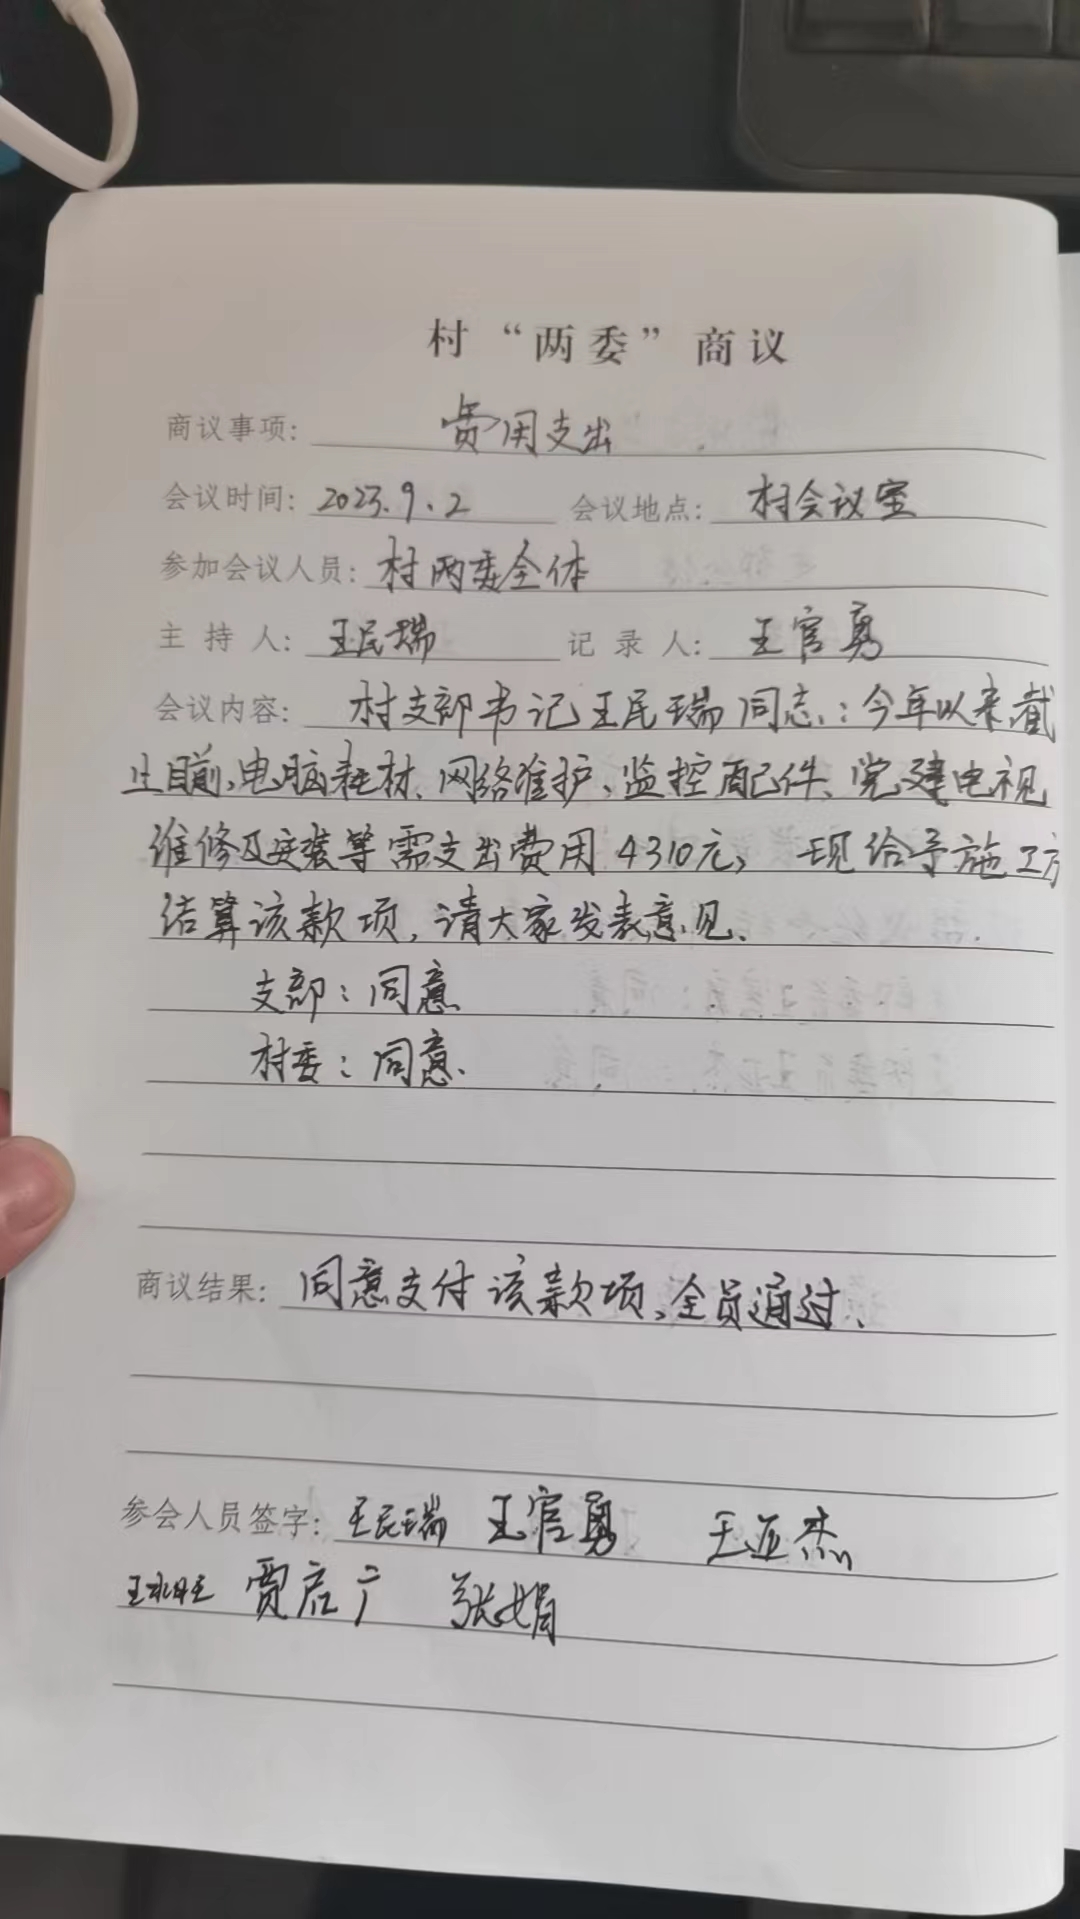 村“两委”商议
商议事项: 费用支出
会议时间: 2023.9.2 会议地点: 村会议室
参加会议人员: 村两委全体
主持人: 王民瑞 记录人: 王官勇
会议内容: 村支部书记王民瑞同志:今年以来,截
止目前,电脑耗材、网络维护、监控配件、党建电视
维修及安装等需支出费用4310元, 现给予施工方
结算该款项,请大家发表意见.
支部:同意
村委:同意.
商议结果: 同意支付该款项,全员通过.
参会人员签字: 王民瑞 王官勇 王亚杰
贾启广 张娟